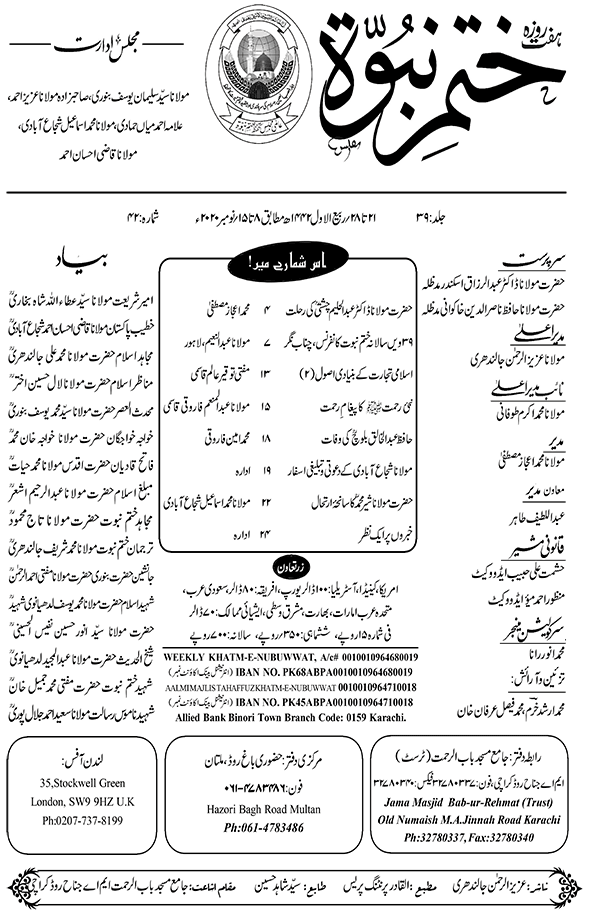 ہفت روزہ
ختم نبوۃ
مجلس ادارت
مولانا سید سلیمان یوسف بنوری، صاحبزادہ مولانا عزیز احمد،
علامہ احمد میاں حمادی، مولانا محمد اسماعیل شجاع آبادی،
مولانا قاضی احسان احمد
جلد: ۳۹ ۲۱ تا ۲۸/ربیع الاول ۱۴۴۲ھ مطابق ۸ تا ۱۵/نومبر ۲۰۲۰ء شمارہ: ۴۲
سرپرست
حضرت مولانا ڈاکٹر عبدالرزاق اسکندر مدظلہ
حضرت مولانا حافظ ناصر الدین خاکوانی مدظلہ
مدیر اعلیٰ
مولانا عزیز الرحمٰن جالندھری
نائب مدیر اعلیٰ
مولانا محمد اکرم طوفانی
مدیر
مولانا محمد اعجاز مصطفیٰ
معاون مدیر
عبداللطیف طاہر
قانونی مشیر
حشمت علی حبیب ایڈووکیٹ
منظور احمد میؤ ایڈووکیٹ
سرکولیشن منیجر
محمد انور رانا
تزئین و آرائش:
محمد ارشد خرم، محمد فیصل عرفان خان
اس شمارے میں!
حضرت مولانا ڈاکٹر عبدالحلیم چشتیؒ کی رحلت ۴ محمد اعجاز مصطفیٰ
۳۹ویں سالانہ ختم نبوت کانفرنس، چناب نگر ۷ مولانا عبدالنعیم، لاہور
اسلامی تجارت کے بنیادی اصول (۲) ۱۳ مفتی توقیر عالم قاسمی
نبی رحمت ﷺ کا پیغام رحمت ۱۵ مولانا عبدالمنعم فاروقی قاسمی
حافظ عبدالخالق بلوچؒ کی وفات ۱۸ محمد امین فاروقی
مولانا شجاع آبادی کے دعوتی و تبلیغی اسفار ۱۹ ادارہ
حضرت مولانا شیر محمدؒ کا سانحۂ ارتحال ۲۲ مولانا محمد اسماعیل شجاع آبادی
خبروں پر ایک نظر ۲۴ ادارہ
زرتعاون
امریکا، کینیڈا، آسٹریلیا: ۱۰۰ ڈالر یورپ، افریقہ: ۸۰ ڈالر، سعودی عرب،
متحدہ عرب امارات، بھارت، مشرق وسطیٰ، ایشیائی ممالک: ۷۰ ڈالر
فی شمارہ ۱۵ روپے، ششماہی: ۳۵۰ روپے، سالانہ: ۷۰۰ روپے
WEEKLY KHATM-E-NUBUWWAT, A/c# 0010010964680019
IBAN NO. PK68ABPA0010010964680019 (انٹرنیشنل بینک اکاؤنٹ نمبر)
AALMI MAJLIS TAHAFFUZ KHATM-E-NUBUWWAT 0010010964710018
IBAN NO. PK45ABPA0010010964710018 (انٹرنیشنل بینک اکاؤنٹ نمبر)
Allied Bank Binori Town Branch Code: 0159 Karachi.
بیاد
امیر شریعت مولانا سید عطاء اللہ شاہ بخاریؒ
خطیب پاکستان مولانا قاضی احسان احمد شجاع آبادیؒ
مجاہد اسلام حضرت مولانا محمد علی جالندھریؒ
مناظر اسلام حضرت مولانا لال حسین اخترؒ
محدث العصر حضرت مولانا سید محمد یوسف بنوریؒ
خواجہ خواجگان حضرت مولانا خواجہ خان محمدؒ
فاتح قادیان حضرت اقدس مولانا محمد حیاتؒ
مبلغ اسلام حضرت مولانا عبدالرحیم اشعرؒ
مجاہد ختم نبوت حضرت مولانا تاج محمودؒ
ترجمان ختم نبوت مولانا محمد شریف جالندھریؒ
جانشین حضرت بنوری حضرت مولانا مفتی احمد الرحمٰنؒ
شہید اسلام حضرت مولانا محمد یوسف لدھیانوی شہیدؒ
حضرت مولانا سید انور حسین نفیس الحسینیؒ
شیخ الحدیث حضرت مولانا عبدالمجید لدھیانویؒ
شہید ختم نبوت حضرت مفتی محمد جمیل خانؒ
شہید ناموس رسالت مولانا سعید احمد جلال پوریؒ
رابطہ دفتر: جامع مسجد باب الرحمت (ٹرسٹ)
ایم اے جناح روڈ کراچی، فون: ۳۲۷۸۰۳۳۷، فیکس: ۳۲۷۸۰۳۴۰
Jama Masjid Bab-ur-Rehmat (Trust)
Old Numaish M.A.Jinnah Road Karachi
Ph:32780337, Fax:32780340
مرکزی دفتر: حضوری باغ روڈ، ملتان
فون: ۰۶۱-۴۷۸۳۴۸۶
Hazori Bagh Road Multan
Ph:061-4783486
لندن آفس:
35,Stockwell Green
London, SW9 9HZ U.K
Ph:0207-737-8199
ناشر: عزیز الرحمٰن جالندھری مطبع: القادر پرنٹنگ پریس طابع: سید شاہد حسین مقام اشاعت: جامع مسجد باب الرحمت ایم اے جناح روڈ کراچی